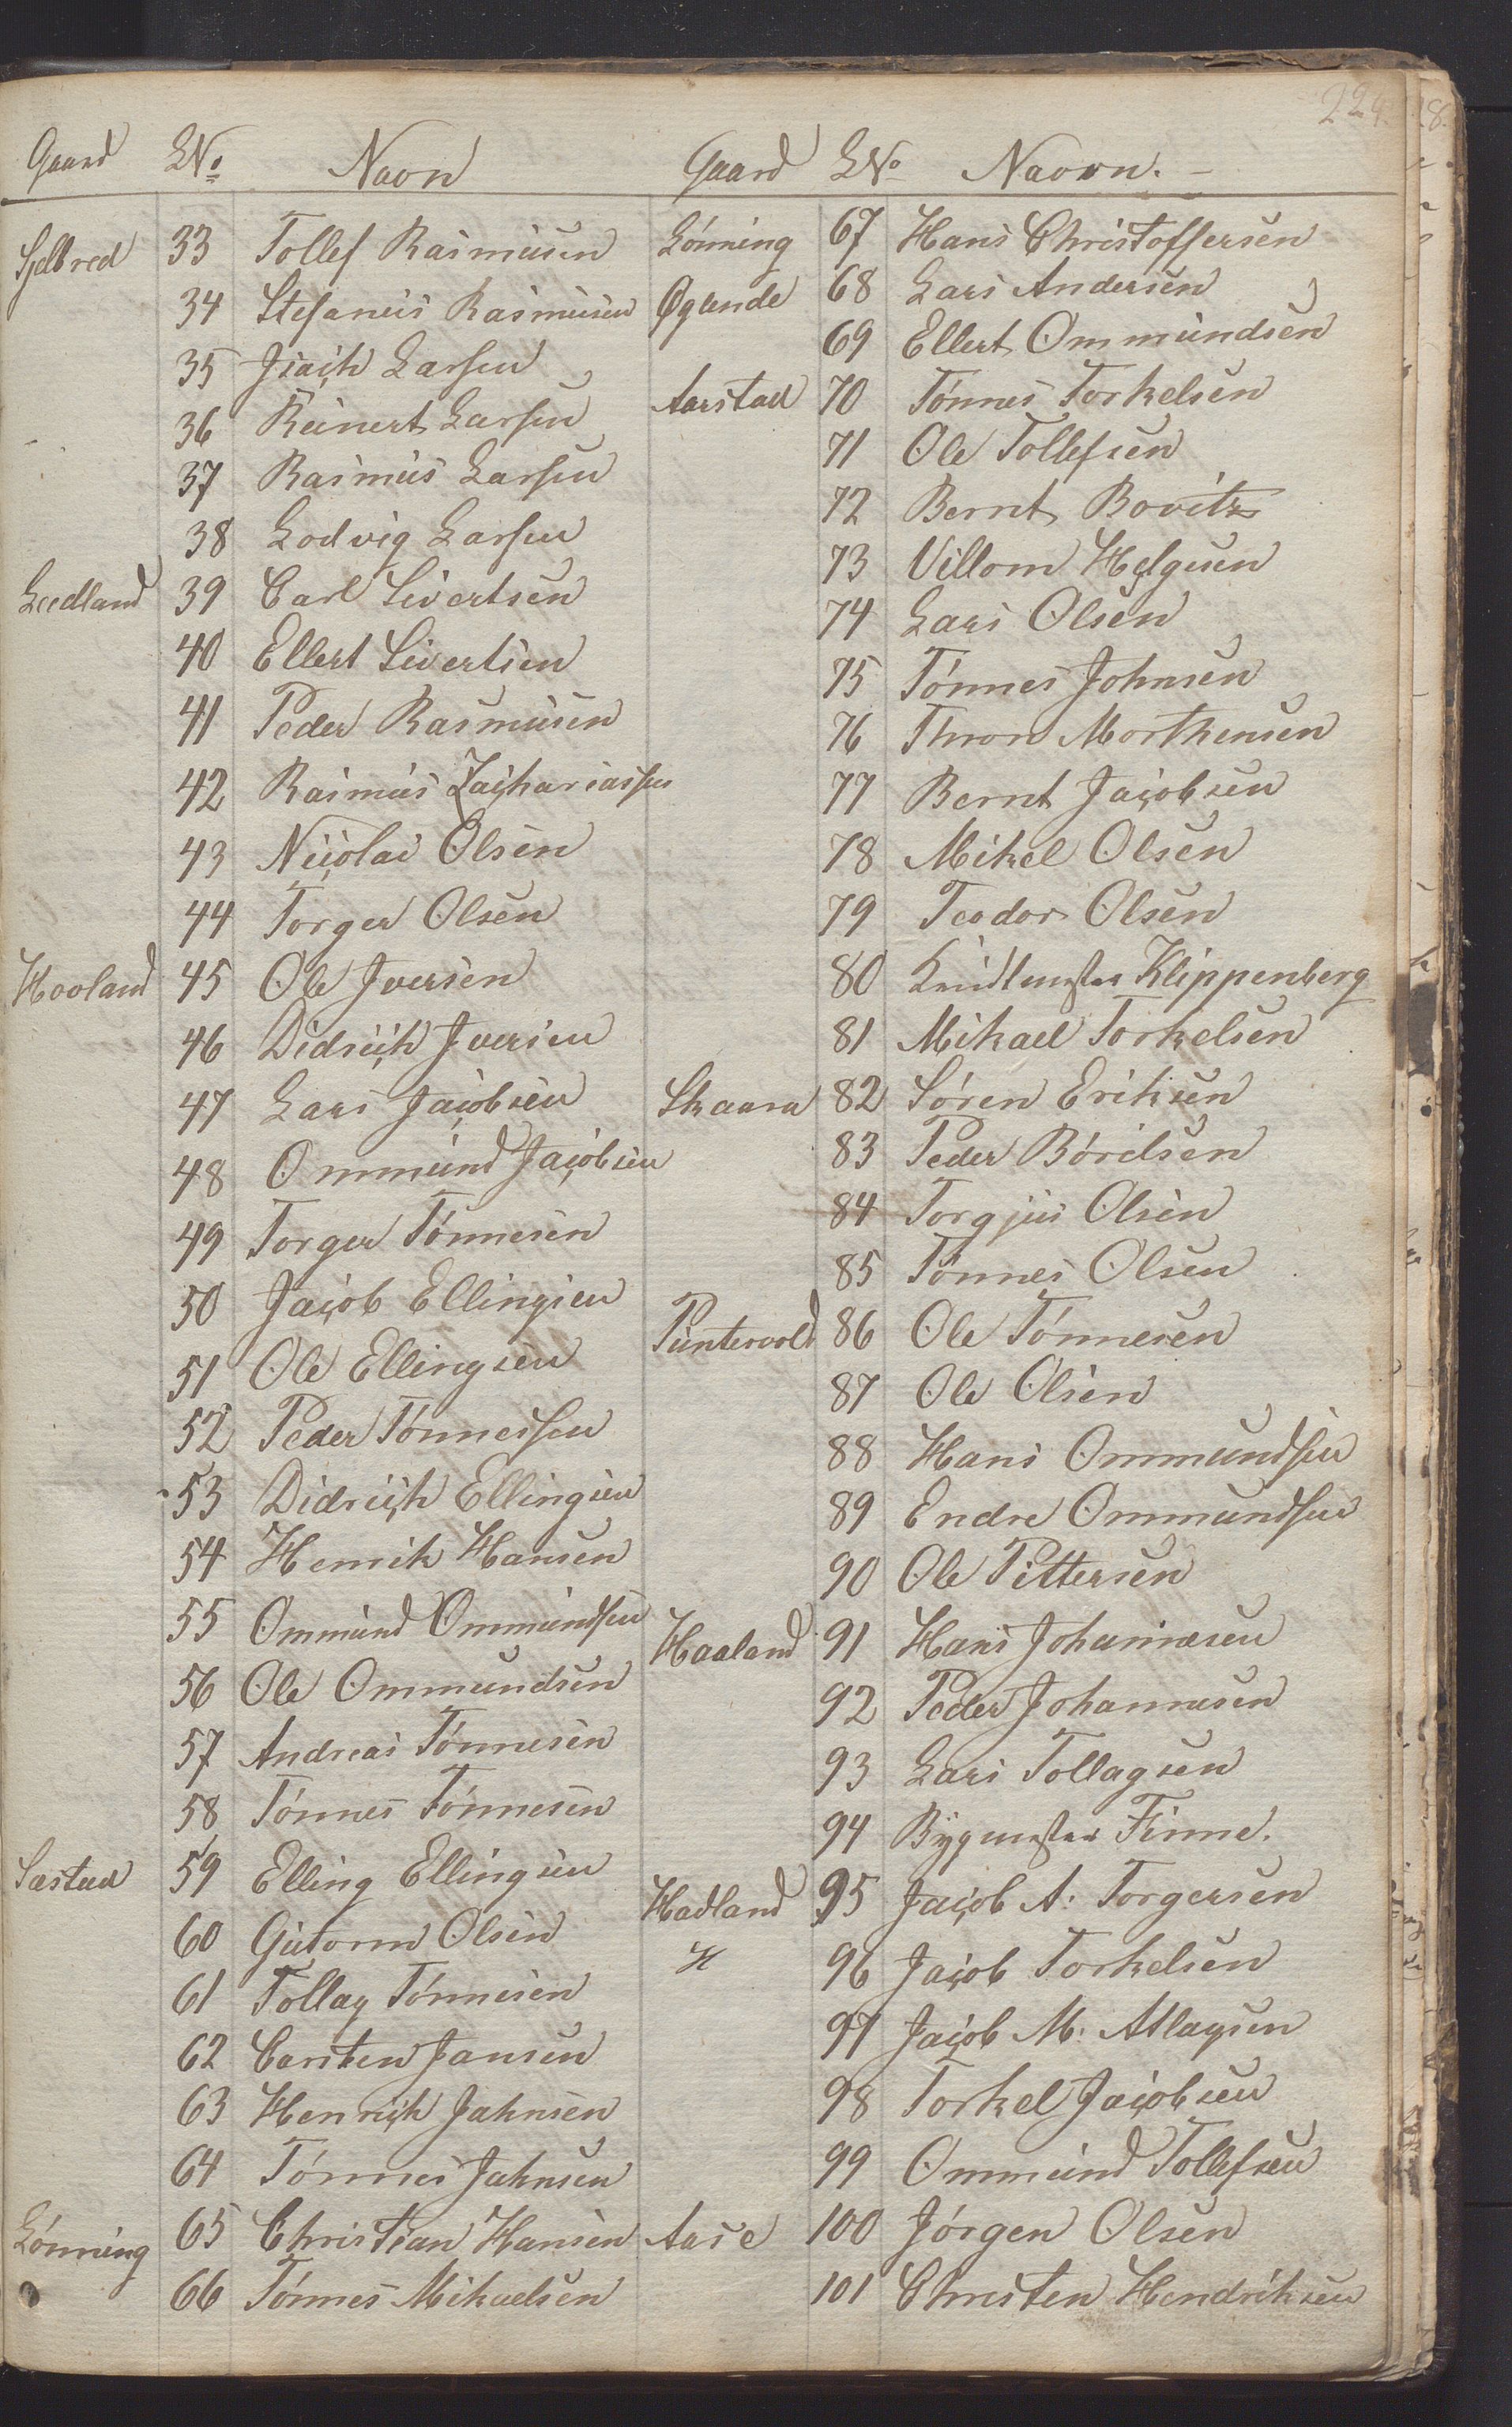 224.
Gaard LNo Navn
Sjelbred 33 Tollef Rasmusen
34 Stefanus Rasmusen
35 Isach Larsen
36 Reinert Larsen
37 Rasmus Larsen
38 Lodvig Larsen
Leedland 39 Carl Sivertsen
40 Ellert Sivertsen
41 Peder Rasmusen
42 Rasmus Zachariassen
43 Nicolai Olsen
44 Torger Olsen
Hovland 45 Ole Iversen
46 Didrich Iversen
47 Lars Jacobsen
48 Ommund Jacobsen
49 Torger Tónnesen
50 Jacob Ellingsen
51 Ole Ellingsen
52 Peder Tónnessen
53 Didrich Ellingsen
54 Henrik Hansen
55 Ommund Ommundsen
56 Ole Ommundsen
57 Andreas Tónnesen
58 Tónnes Tónnesen
Sæstad 59 Elling Ellingsen
60 Gutorm Olsen
61 Tollag Tónnesen
62 Carsten Jansen
63 Henrich Jahnsen
64 Tónnes Jahnsen
Lónning 65 Christian Hansen
66 Tónnes Mikaelsen
Gaard LNo Navn. -
Lónning 67 Hans Christoffersen
Øgænde 68 Lars Andersen
69 Ellert Ommundsen
Aarstad 70 Tónnes Torkelsen
71 Ole Tollefsen
72 Bernt Bovitz
73 Villom Helgesen
74 Lars Olsen
75 Tónnes Johnsen
76 Thron Morthensen
77 Bernt Jacobsen
78 Mikel Olsen
79 Teodor Olsen
80 Klippenberg
81 Mikael Torkelsen
Skaara 82 Sóren Eriksen
83 Peder Bórilsen
84 Torgjus Olsen
85 Tónnes Olsen
Puntervold 86 Ole Tónnesen
87 Ole Olsen
88 Hans Ommundsen
89 Endre Ommundsen
90 Ole Pittersen
Haaland 91 Hans Johannesen
92 Peder Johannesen
93 Lars Tollagsen
94 Bygmester Finne.
Hadland 95 Jacob A: Torgersen
96 Jacob Torkelsen
97 Jacob M: Atlagsen
98 Torkel Jacobsen
99 Ommund Tollefsen
Aase 100 Jórgen Olsen
101 Christen Hendriksen